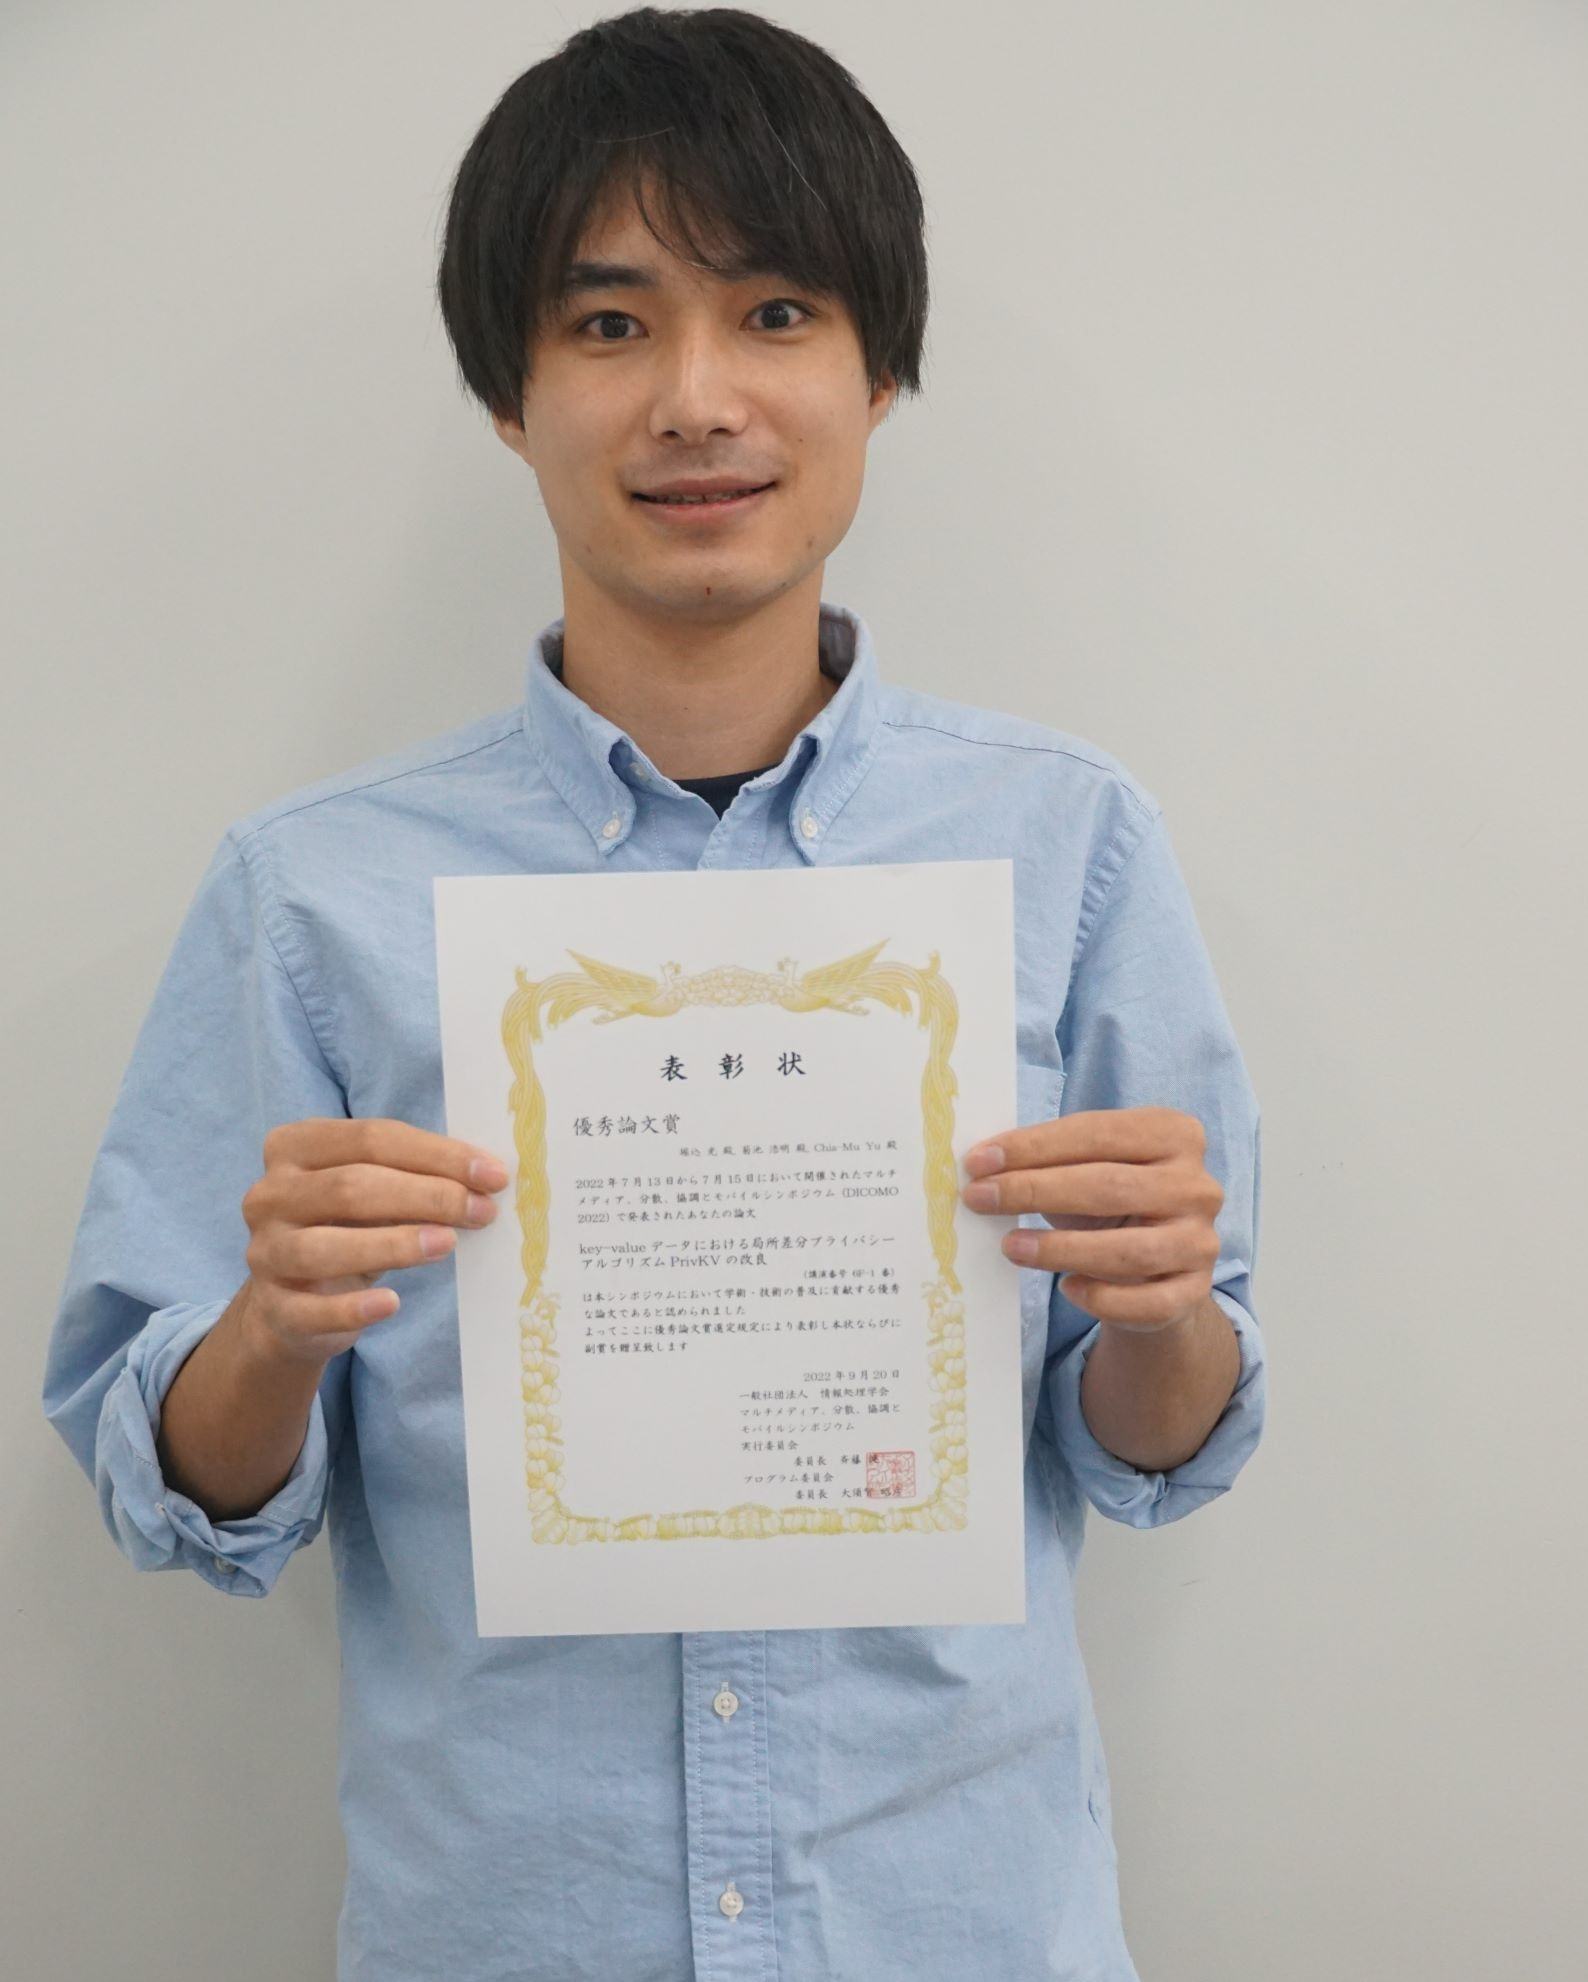 表彰状
優秀論文賞
堀込 光 殿, 菊池 浩明 殿, Chia-Mu Yu 殿
2022年7月13日から7月15日において開催されたマルチ
メディア、分散、協調とモバイルシンポジウム (DICOMO
2022) で発表されたあなたの論文
key-value データにおける局所差分プライバシー
アルゴリズム PrivKV の改良
(講演番号 6F-1 番)
は本シンポジウムにおいて学術・技術の普及に貢献する優秀
な論文であると認められました
よってここに優秀論文賞選定規定により表彰し本状ならびに
副賞を贈呈致します
2022年9月20日
一般社団法人 情報処理学会
マルチメディア、分散、協調と
モバイルシンポジウム
実行委員会
委員長 斉藤
プログラム委員会
委員長 大須賀 昭彦